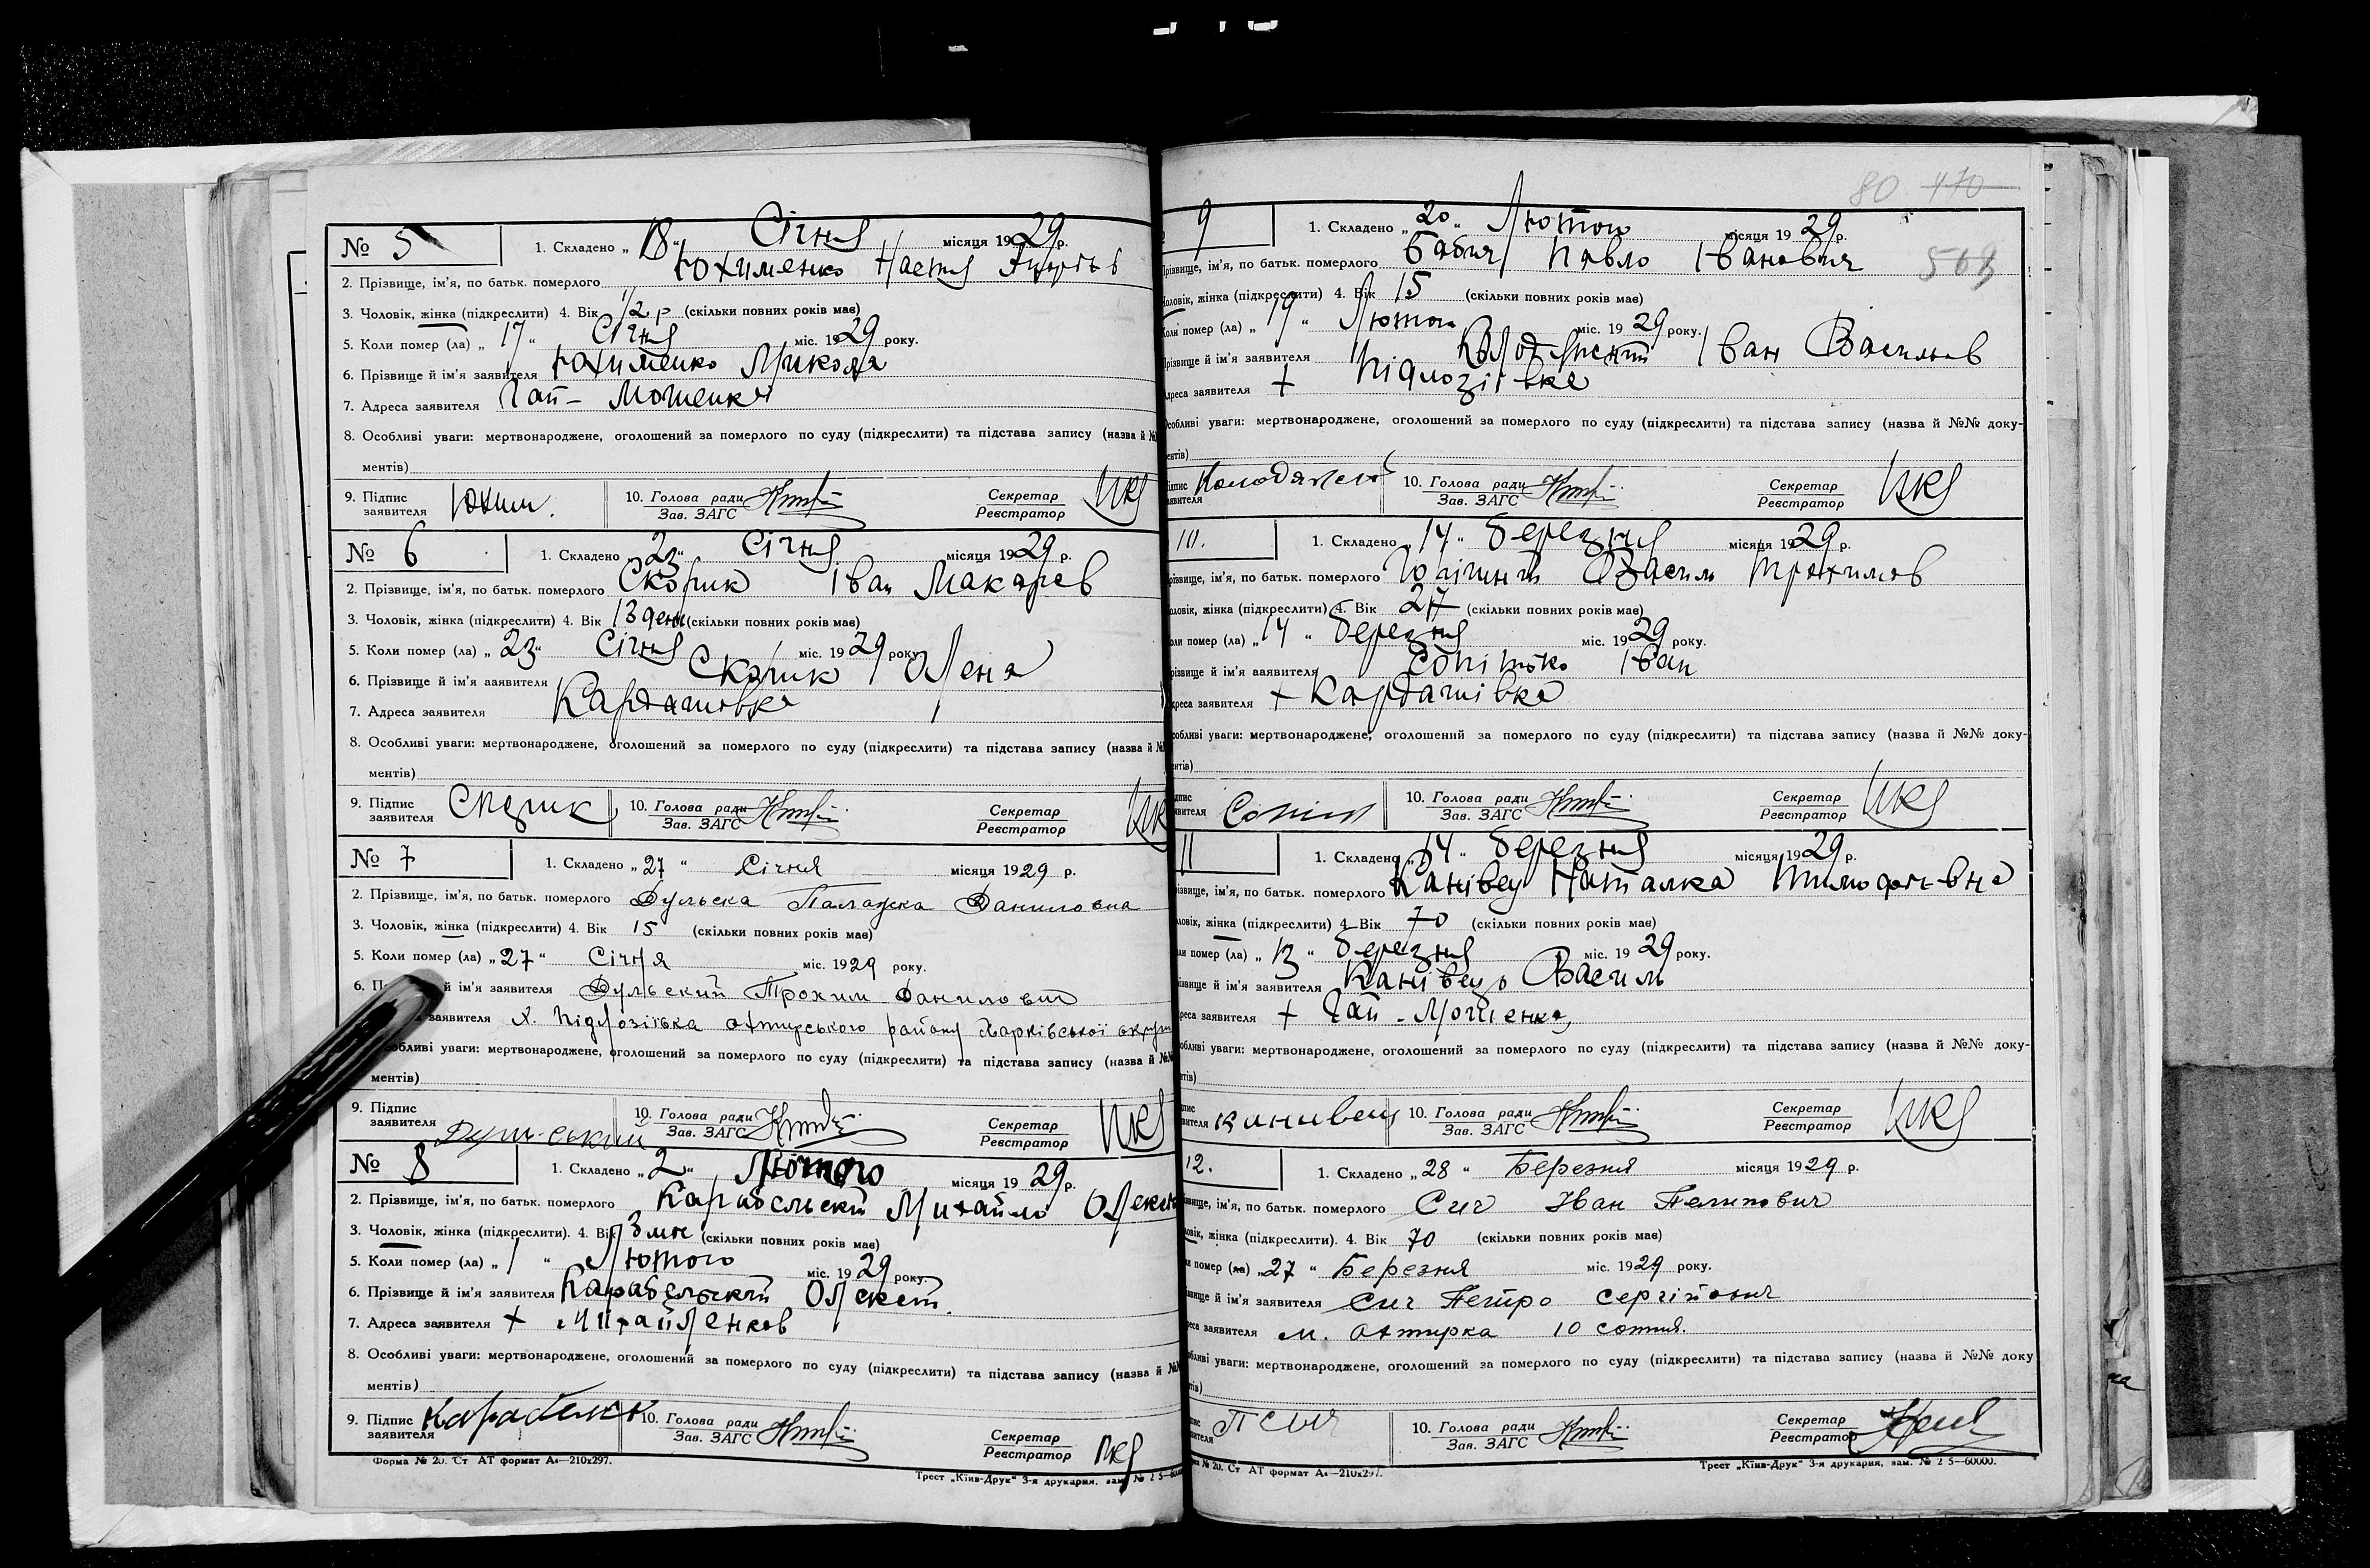 № 5
1. Складено „ 18 “ Січня місяця 1929 р.
2. Прізвище, ім'я, по батьк. померлого Юхименко Настя
3. Чоловік, жінка (підкреслити) 4. Вік 1/2 р (скільки повних років має)
5. Коли помер (ла) „ 17 “ Січня міс. 1929 року.
6. Прізвище й ім'я заявителя Юхименко Микола
7. Адреса заявителя Гай-Мошенка
8. Особливі уваги: мертвонароджене, оголошений за померлого по суду (підкреслити) та підстава запису (назва й №
ментів)
9. Підпис заявителя Юхим. 10. Голова ради Зав. ЗАГС Секретар Реєстратор
№ 6
1. Складено „ 23 “ Січня місяця 1929 р.
2. Прізвище, ім'я, по батьк. померлого Скорик Іван Макарев
3. Чоловік, жінка (підкреслити) 4. Вік 13 ден (скільки повних років має)
5. Коли помер (ла) „ 23 “ Січня міс. 1929 року
6. Прізвище й ім'я заявителя Скорик Олена
7. Адреса заявителя Кардашівка
8. Особливі уваги: мертвонароджене, оголошений за померлого по суду (підкреслити) та підстава запису (назва й №
ментів)
9. Підпис заявителя 10. Голова ради Зав. ЗАГС Секретар Реєстратор
№ 7
1. Складено „ 27 “ Січня місяця 1929 р.
2. Прізвище, ім'я, по батьк. померлого Дульска Палажка Даниловна
3. Чоловік, жінка (підкреслити) 4. Вік 15 (скільки повних років має)
5. Коли помер (ла) „ 27 “ Січня міс. 1929 року.
6. й ім'я заявителя Дульский Трохим Данилович
заявителя х. Підлозіївка охтирського району Харківської округи
обливі уваги: мертвонароджене, оголошений за померлого по суду (підкреслити) та підстава запису (назва й №
ментів)
9. Підпис заявителя 10. Голова ради Зав. ЗАГС Секретар Реєстратор
№ 8
1. Складено „ 2 “ Лютого місяця 1929 р.
2. Прізвище, ім'я, по батьк. померлого Карабельский Михайло
3. Чоловік, жінка (підкреслити). 4. Вік 3 міс (скільки повних років має)
5. Коли помер (ла) „ 1 “ Лютого міс. 1929 року.
6. Прізвище й ім'я заявителя Карабельский Олексій.
7. Адреса заявителя х Михайленков
8. Особливі уваги: мертвонароджене, оголошений за померлого по суду (підкреслити) та підстава запису (назва й №
ментів)
9. Підпис заявителя 10. Голова ради Зав. ЗАГС Секретар Реєстратор
Форма № 20. Ст АТ формат А4—210х297.
Трест „Київ-Друк“ 3-я друкарня, зам. № 2 5—60
80 470
9
1. Складено „ 20 “ Лютого місяця 1929 р.
різвище, ім'я, по батьк. померлого Бабич Павло Іванович
оловік, жінка (підкреслити) 4. Вік 15 (скільки повних років має)
Коли помер (ла) „ 19 “ Лютого міс. 1929 року.
різвище й ім'я заявителя Іван Васильов
дреса заявителя х Підлозіївка
собливі уваги: мертвонароджене, оголошений за померлого по суду (підкреслити) та підстава запису (назва й №№ доку-
ентів)
10. Голова ради Зав. ЗАГС Секретар Реєстратор
10.
1. Складено „ 14 “ Березня місяця 1929 р.
різвище, ім'я, по батьк. померлого Василь Трохимов
оловік, жінка (підкреслити) 4. Вік 27 (скільки повних років має)
оли помер (ла) „ 14 “ Березня міс. 1929 року.
різвище й ім'я заявителя Іван
дреса заявителя х Кардашівка
собливі уваги: мертвонароджене, оголошений за померлого по суду (підкреслити) та підстава запису (назва й №№ доку-
ентів)
10. Голова ради Зав. ЗАГС Секретар Реєстратор
11
1. Складено „ 14 “ Березня місяця 1929 р.
різвище, ім'я, по батьк. померлого Канівец Наталка Тимофіівна
ловік, жінка (підкреслити) 4. Вік 70 (скільки повних років має)
ли помер (ла) „ 13 “ Березня міс. 1929 року.
ізвище й ім'я заявителя Канівець Василь
реса заявителя х Гай-Мошенка
обливі уваги: мертвонароджене, оголошений за померлого по суду (підкреслити) та підстава запису (назва й №№ доку-
нтів)
канивец 10. Голова ради Зав. ЗАГС Секретар Реєстратор
12.
1. Складено „ 28 “ Березня місяця 1929 р.
звище, ім'я, по батьк. померлого Сич Иван Пелипович
овік, жінка (підкреслити). 4. Вік 70 (скільки повних років має)
и помер (ла) „ 27 “ Березня міс. 1929 року.
звище й ім'я заявителя Сич Петро Сергійович
реса заявителя м. Охтирка 10 сотня.
обливі уваги: мертвонароджене, оголошений за померлого по суду (підкреслити) та підстава запису (назва й №№ доку
тів)
П Сыч 10. Голова ради Зав. ЗАГС Секретар Реєстратор
№ 20. Ст АТ формат А4—210х297.
Трест „Київ-Друк“ 3-я друкарня, зам. № 2 5—60000.